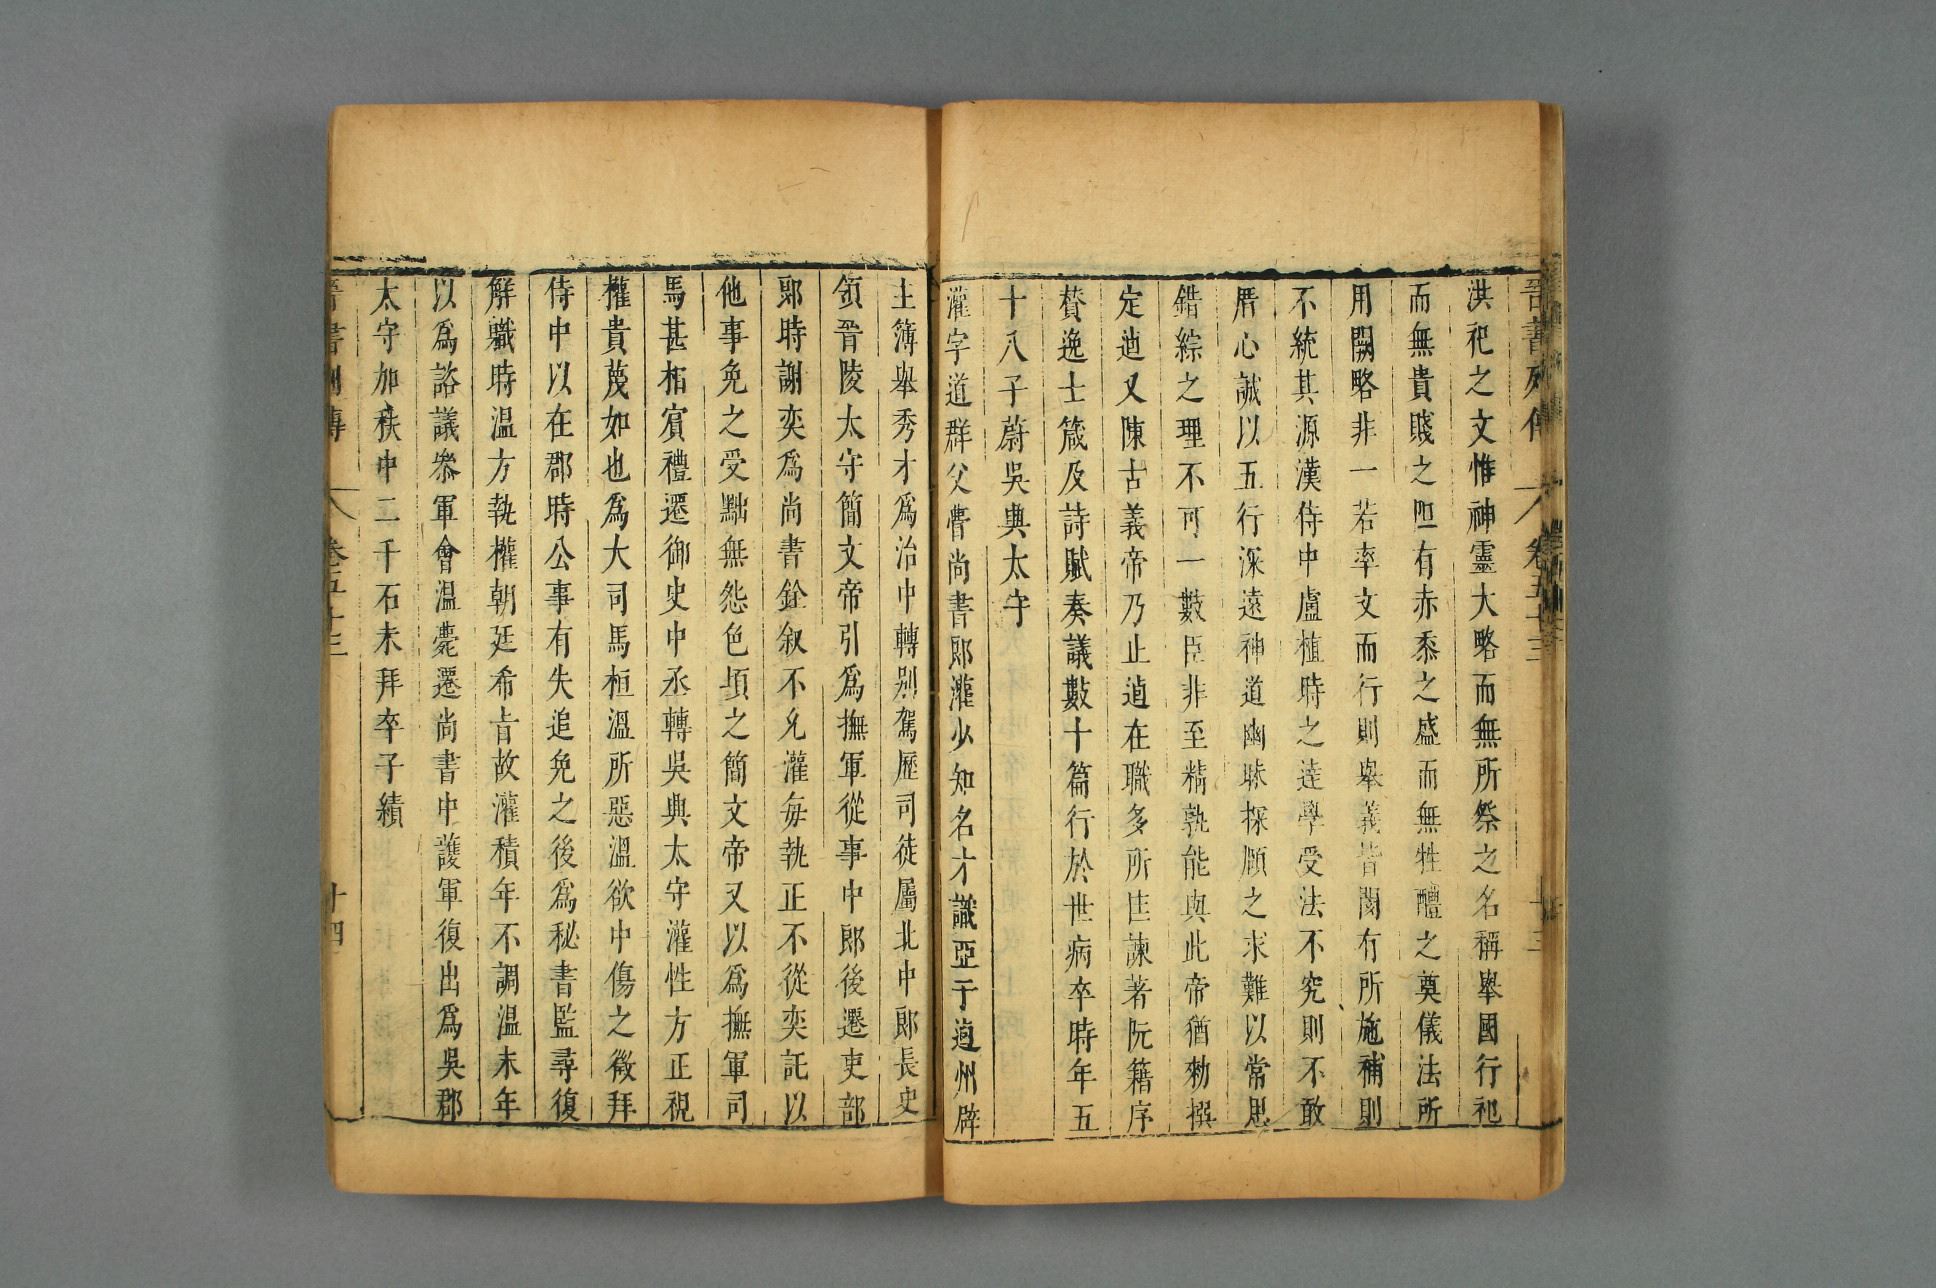 晉書列傳 卷五十三 十三
洪祀之文惟神靈大略而無所祭之名稱舉國行祀
而無貴賤之阻有赤黍之盛而無牲醴之奠儀法所
用闕略非一若率文而行則舉義皆閡有所施補則
不統其源漢侍中盧植時之達學受法不究則不敢
厝心誠以五行深遠神道幽昧探賾之求難以常思
錯綜之理不可一數臣非至精孰能與此帝猶勑撰
定逌又陳古義帝乃止逌在職多所匡諫著阮籍序
贊逸士箴及詩賦奏議數十篇行於世病卒時年五
十八子蔚吳興太守
灌字道群父瞢尚書郎灌少知名才識亞于逌州辟
主簿舉秀才爲治中轉别駕歷司徒屬北中郎長史
領晉陵太守簡文帝引爲撫軍從事中郎後遷吏部
郎時謝奕爲尚書銓叙不允灌每執正不從奕託以
他事免之受黜無怨色頃之簡文帝又以爲撫軍司
馬甚相賓禮遷御史中丞轉吳興太守灌性方正視
權貴蔑如也爲大司馬桓溫所惡溫欲中傷之徵拜
侍中以在郡時公事有失追免之後爲秘書監尋復
解職時温方執權朝廷希旨故灌積年不調温末年
以爲諮議參軍會温薨遷尚書中護軍復出爲吳郡
太守加秩中二千石未拜卒子績
晉書列傳 卷五十三 十四